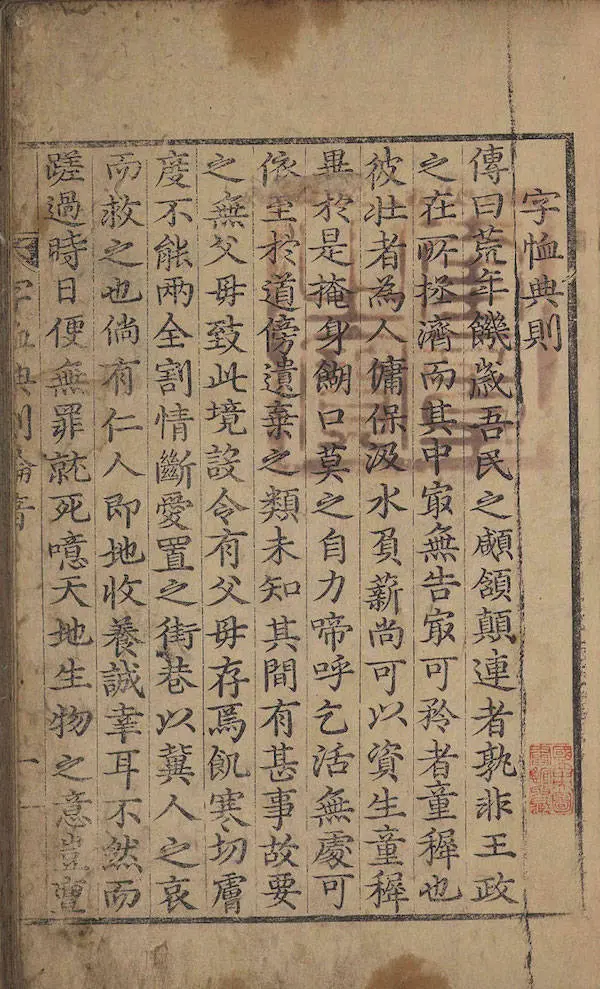 字恤典則
傳曰荒年饑歲吾民之顑頷顛連者孰非王政
之在所拯濟而其中㝡無告㝡可矜者童穉也
彼壯者為人傭保汲水負薪尚可以資生童穉
異於是掩身餬口莫之自力啼呼乞活無處可
依至於道傍遺棄之類未知其間有甚事故要
之無父毋致此境設令有父毋存焉飢寒切膚
度不能兩全割情斷愛置之街巷以冀人之哀
而救之也倘有仁人即地收養誠幸耳不然而
蹉過時日便無罪就死噫天地生物之意豈亶
字恤典則綸音 一